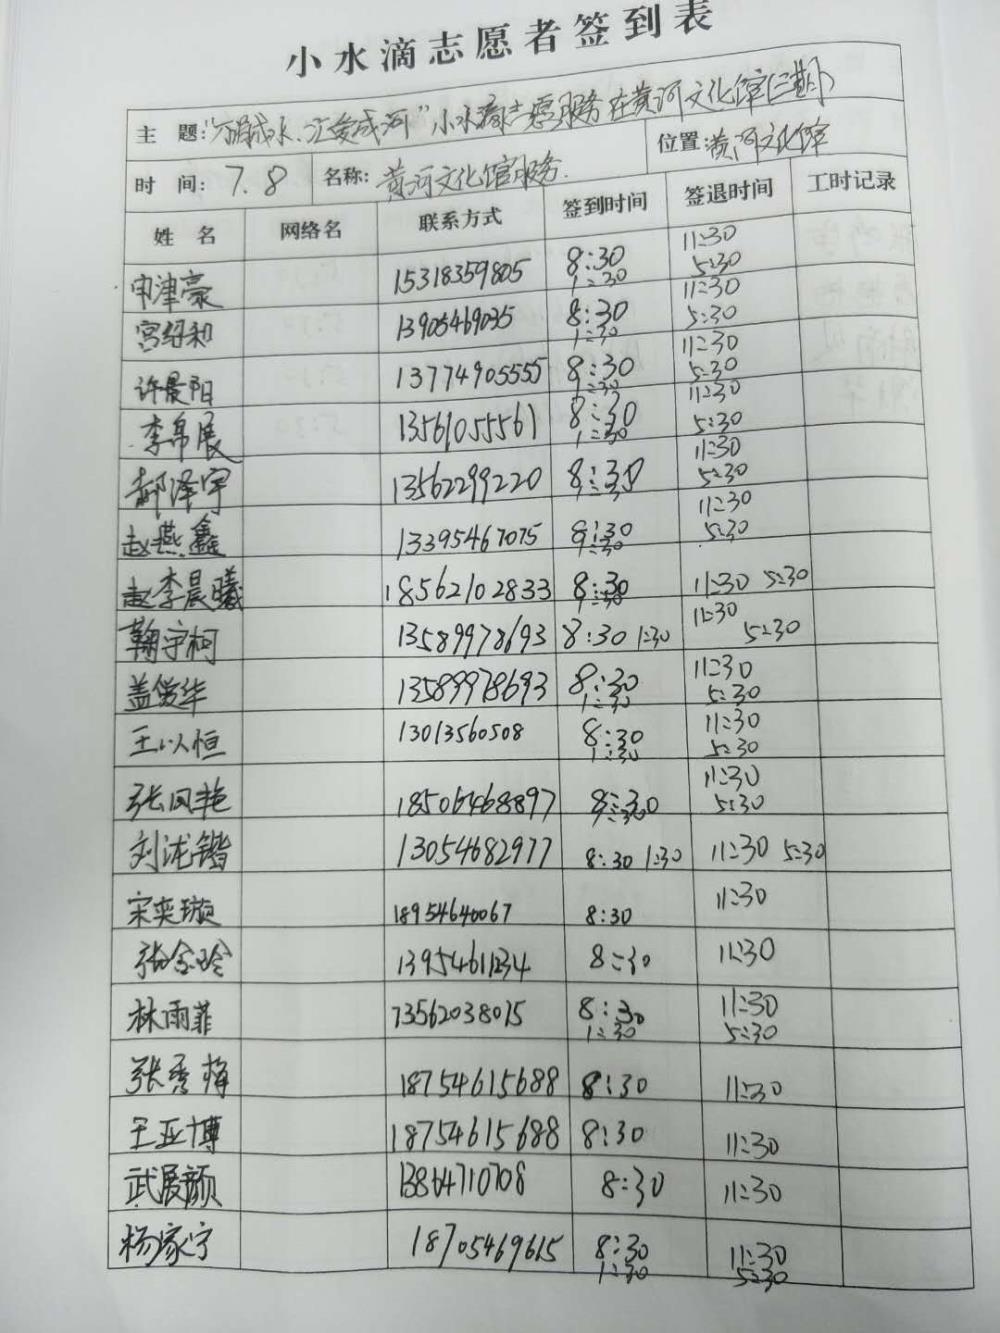 小水滴志愿者签到表
主 题:"涓滴成水、汇爱成河"小水滴志愿服务在黄河文化馆(二期)
时 间: 7.8 名称: 黄河文化馆服务. 位置: 黄河文化馆
姓 名 网络名 联系方式 签到时间 签退时间 工时记录
申津豪 15318359805 8:30 1:30 11:30 5:30
宫绍和 13905469035 8:30 1:30 11:30 5:30
许晨阳 13774905555 8:30 1:30 11:30 5:30
李帛展 13561055561 8:30 1:30 11:30 5:30
郝泽宇 13562299220 8:30 1:30 11:30 5:30
赵燕鑫 13395467075 8:30 1:30 11:30 5:30
赵李晨曦 18562102833 8:30 1:30 11:30 5:30
鞠宇柯 13589978693 8:30 1:30 11:30 5:30
盖俊华 13589978693 8:30 1:30 11:30 5:30
王以恒 13013560508 8:30 1:30 11:30 5:30
张凤艳 18506468897 8:30 1:30 11:30 5:30
刘泷锴 13054682977 8:30 1:30 11:30 5:30
宋奕璇 18954640067 8:30 11:30
张念玲 13954611234 8:30 11:30
林雨菲 13562038015 8:30 1:30 11:30 5:30
张秀梅 18754615688 8:30 11:30
王亚博 18754615688 8:30 11:30
武展颜 13864710708 8:30 11:30
杨家宁 18705469615 8:30 1:30 11:30 5:30